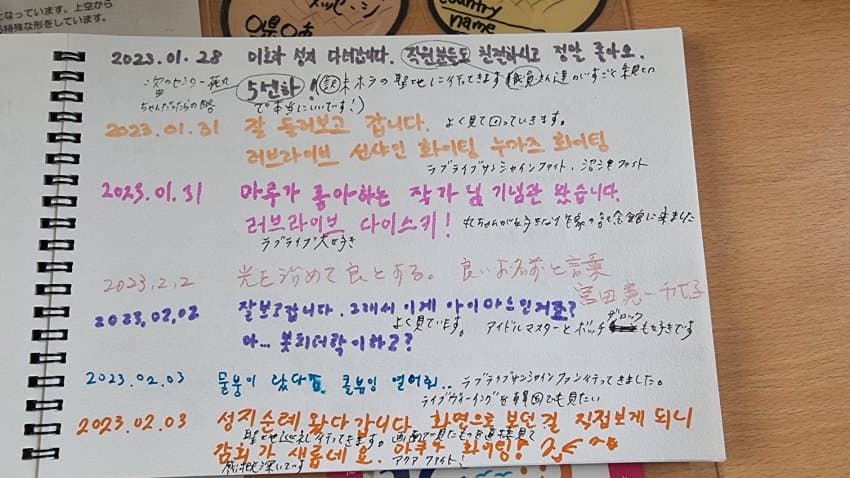 となっています。上空から
る特殊な形をしています。
メッセージ
country
name
2023.01.28 미호라 성지 다녀갑니다. 직원분들도 친절하시고 정말 좋아요.
5선하!
で本当にいいです!)
2023.01.31 잘 둘러보고 갑니다. よく見て回っていきます。
러브라이브 선샤인 화이팅 누마즈 화이팅
ラブライブサンシャインファイト、沼津ファイト
2023.01.31 마루가 좋아하는 작가님 기념관 왔습니다.
러브라이브 다이스키! 丸ちゃんが好きな作家の記念館に来ました
ラブライブ大好き
2023.2.2 光を治めて良とする。良いお名前と言葉
宮田 亮一 千代子
2023.02.02 잘보고갑니다. 그래서 이게 아이마스인거죠?
よく見ています。 アイドルマスターとボッチ ザロック も好きです
아... 봇치더락이라고?
2023.02.03 물붕이 왔다감 콜뷰잉 열어줘.. ラブライブサンシャインファン行ってきました。
ライブヴューイングを韓国でも見たい
2023.02.03 성지순례 왔다 갑니다. 화면으로 보던걸 직접보게 되니
聖地巡礼行ってきます。画面で見たものを直接見て
감회가 새롭네요. 아쿠아 화이팅!
感慨深いです アクア ファイト!